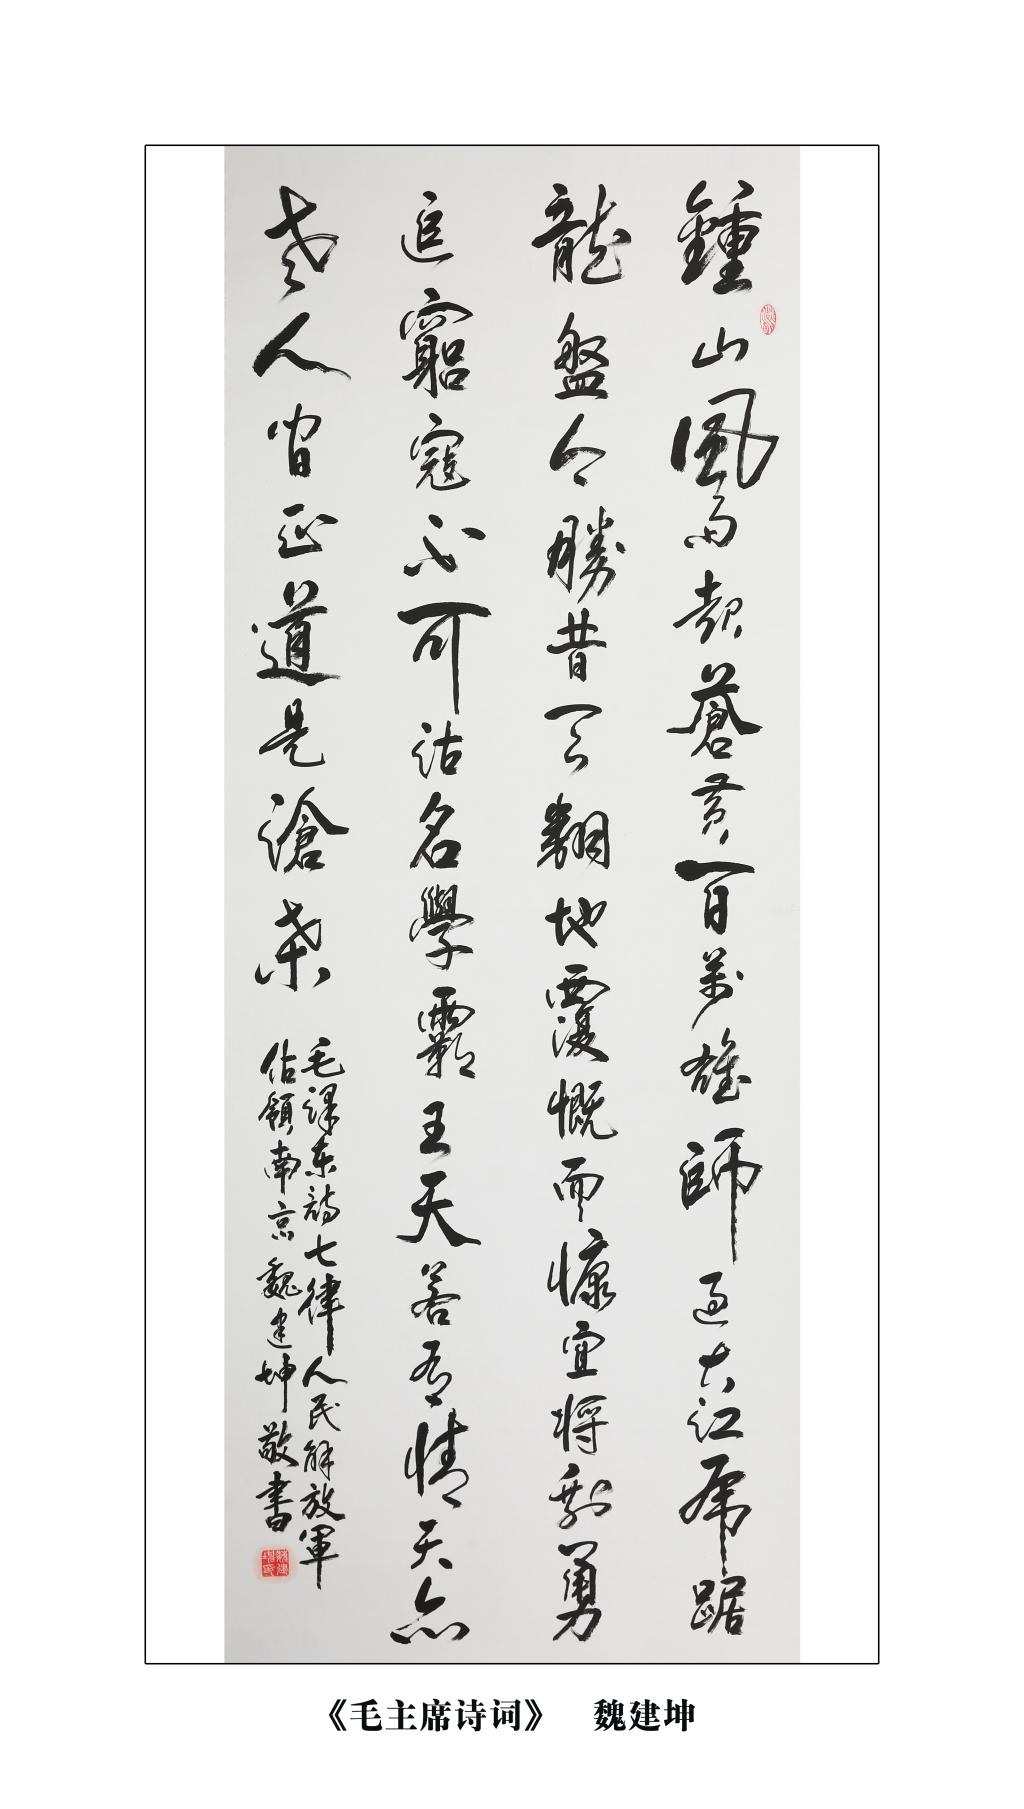 鍾山風雨起蒼黄百萬雄師過大江虎踞
龍盤今勝昔天翻地覆慨而慷宜將剩勇
追竆寇不可沽名學霸王天若有情天亦
老人間正道是滄桑
毛澤东詩七律人民解放軍
佔領南京魏建坤敬書
《毛主席诗词》 魏建坤